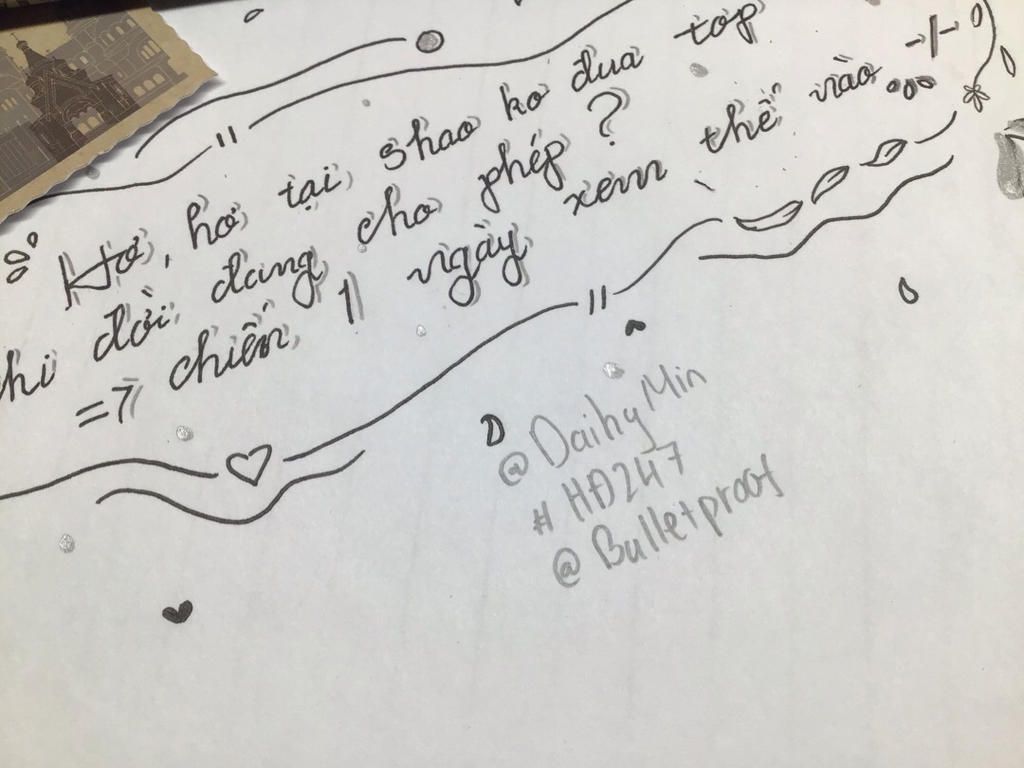 Hơ, hơ tại shao ko đua top
khi đời đang cho phép ?
=> chiến 1 ngày xem thế vào
@DaihyMin
# HĐ247
@Bulletproof